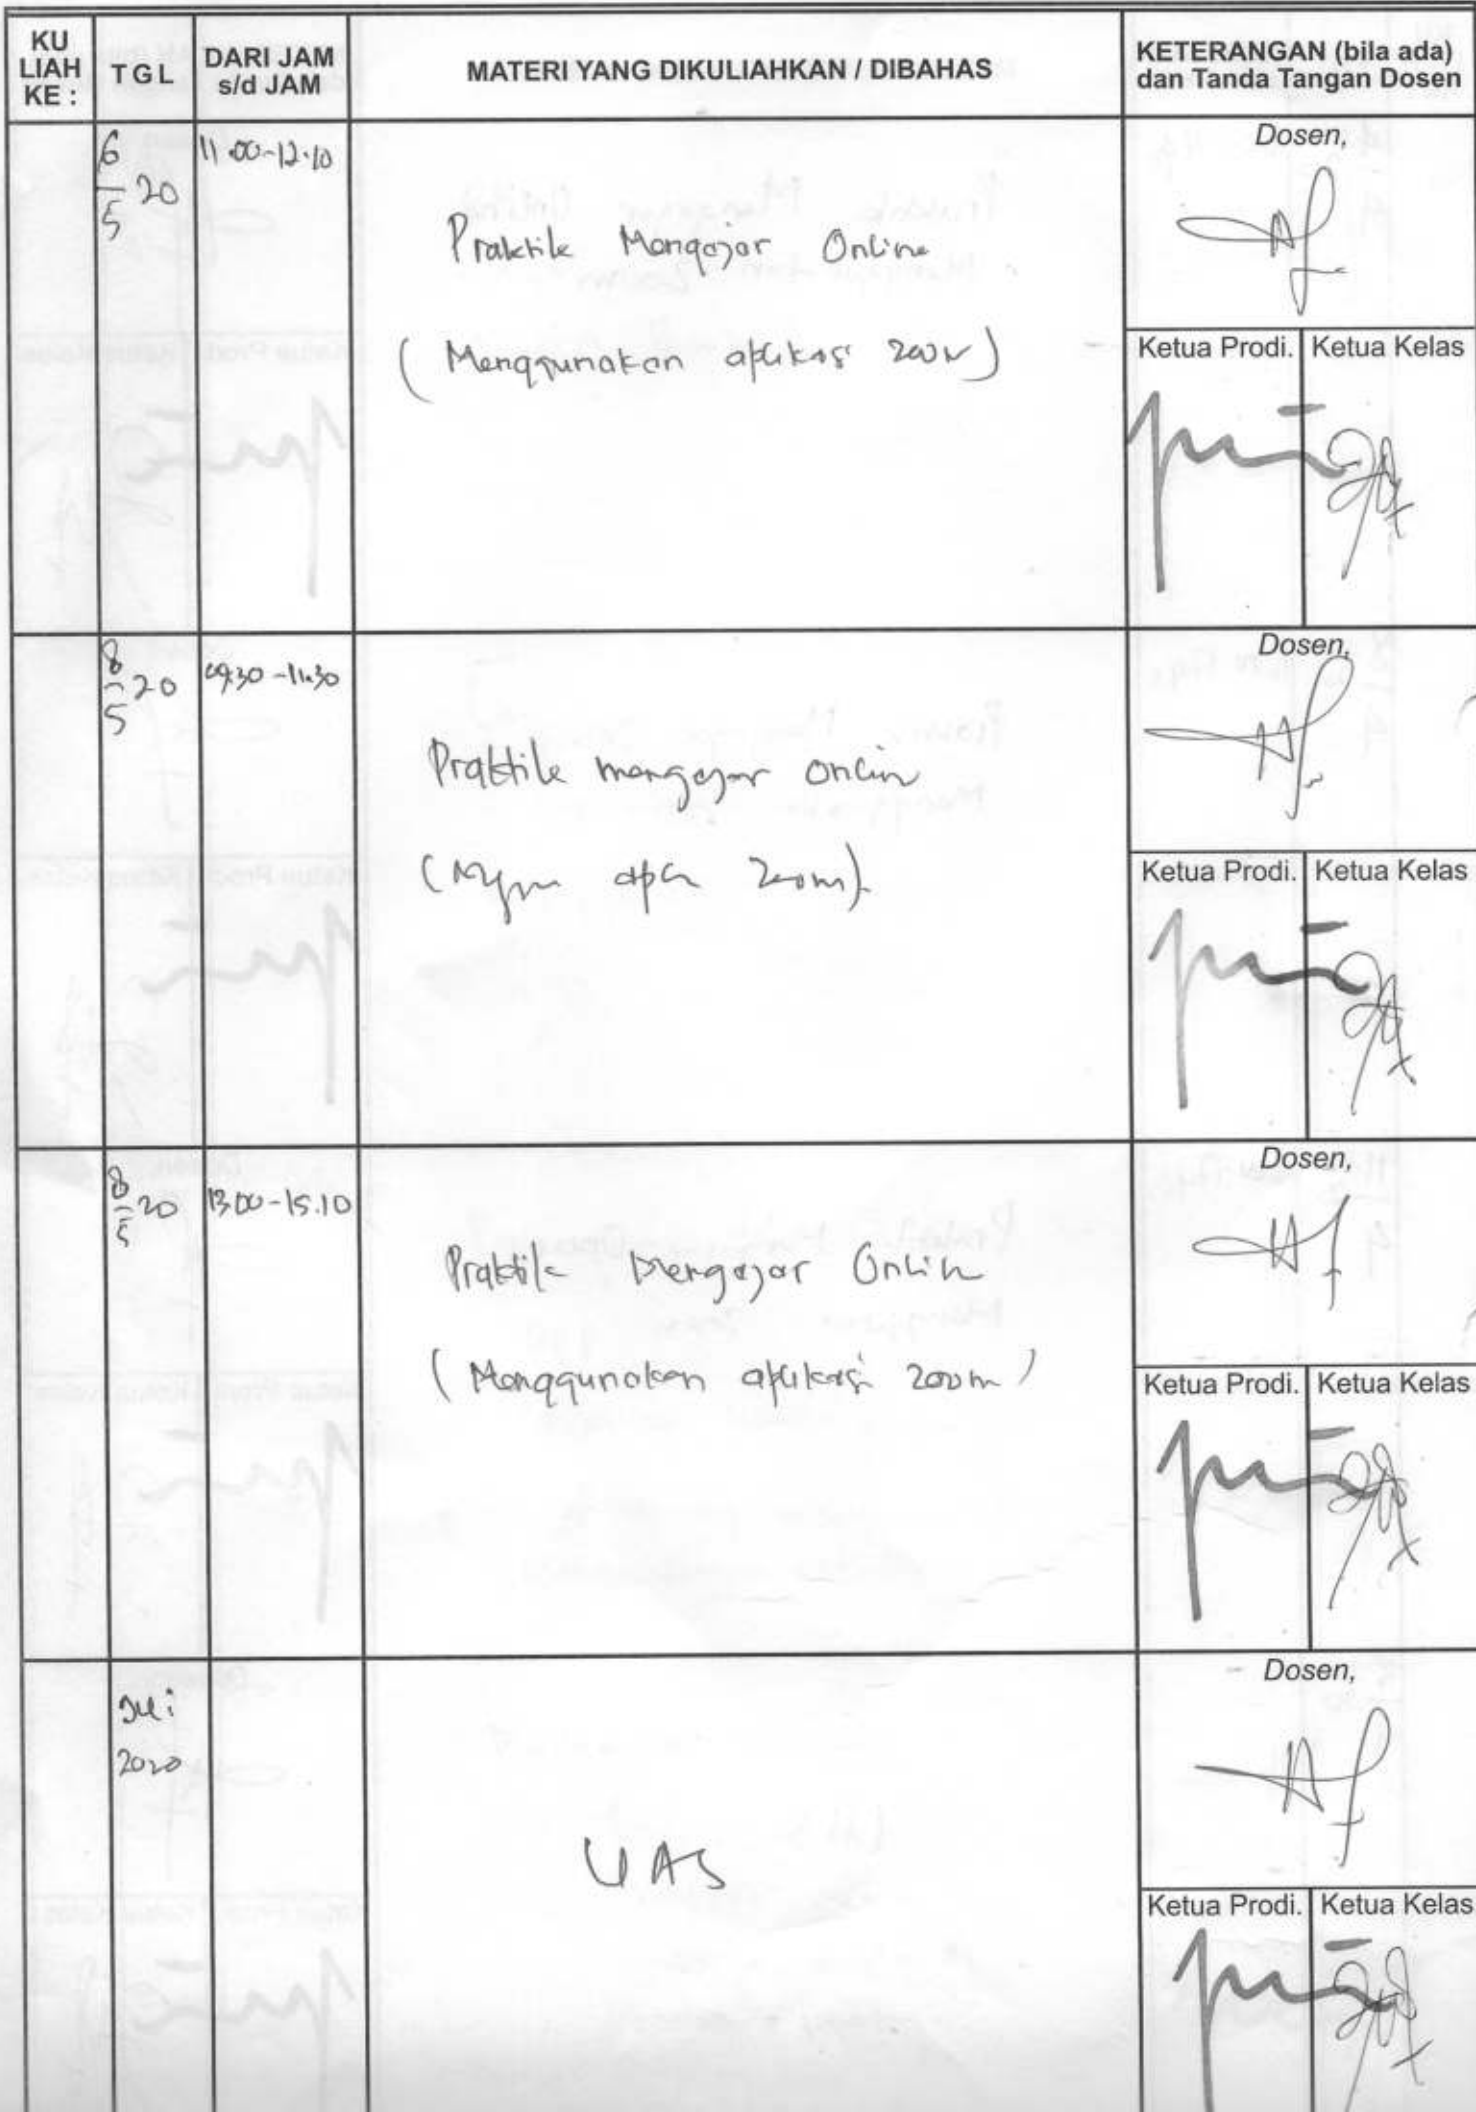 KU LIAH KE :
TGL
DARI JAM s/d JAM
MATERI YANG DIKULIAHKAN / DIBAHAS
KETERANGAN (bila ada) dan Tanda Tangan Dosen
6/5 20
11.00-12.10
Praktik Mengajar Online
(Menggunakan aplikasi zoom)
Dosen,
Ketua Prodi.
Ketua Kelas
8/5 20
09.30-11.30
Praktik mengajar onlin
zoom)
Dosen,
Ketua Prodi.
Ketua Kelas
8/5 20
13.00-15.10
Praktik Mengajar Onlin
(Menggunakan aplikasi zoom)
Dosen,
Ketua Prodi.
Ketua Kelas
Juli
2020
UAS
Dosen,
Ketua Prodi.
Ketua Kelas